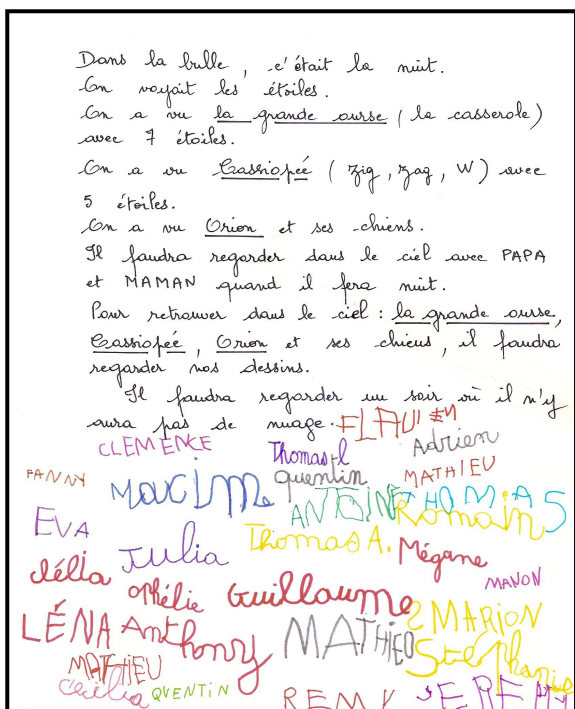 Dans la bulle, c'était la nuit.
On voyait les étoiles.
On a vu la grande ourse (la casserole)
avec 7 étoiles.
On a vu Cassiopée (zig, zag, W) avec
5 étoiles.
On a vu Orion et ses chiens.
Il faudra regarder dans le ciel avec PAPA
et MAMAN quand il fera nuit.
Pour retrouver dans le ciel : la grande ourse,
Cassiopée, Orion et ses chiens, il faudra
regarder nos dessins.
Il faudra regarder un soir où il n'y
aura pas de nuage.
FLAVIEN
CLEMENCE Thomas.l Adrien
FANNY Maxime quentin MATHIEU
ANTOINE THOMAS
EVA Julia Thomas A. Romain
Clélia Mégane
Ophélie Guillaume MANON
LÉNA Anthony MATHIEO MARION
MATHIEU Stéphanie
Cécilia QUENTIN REMY JEREMY